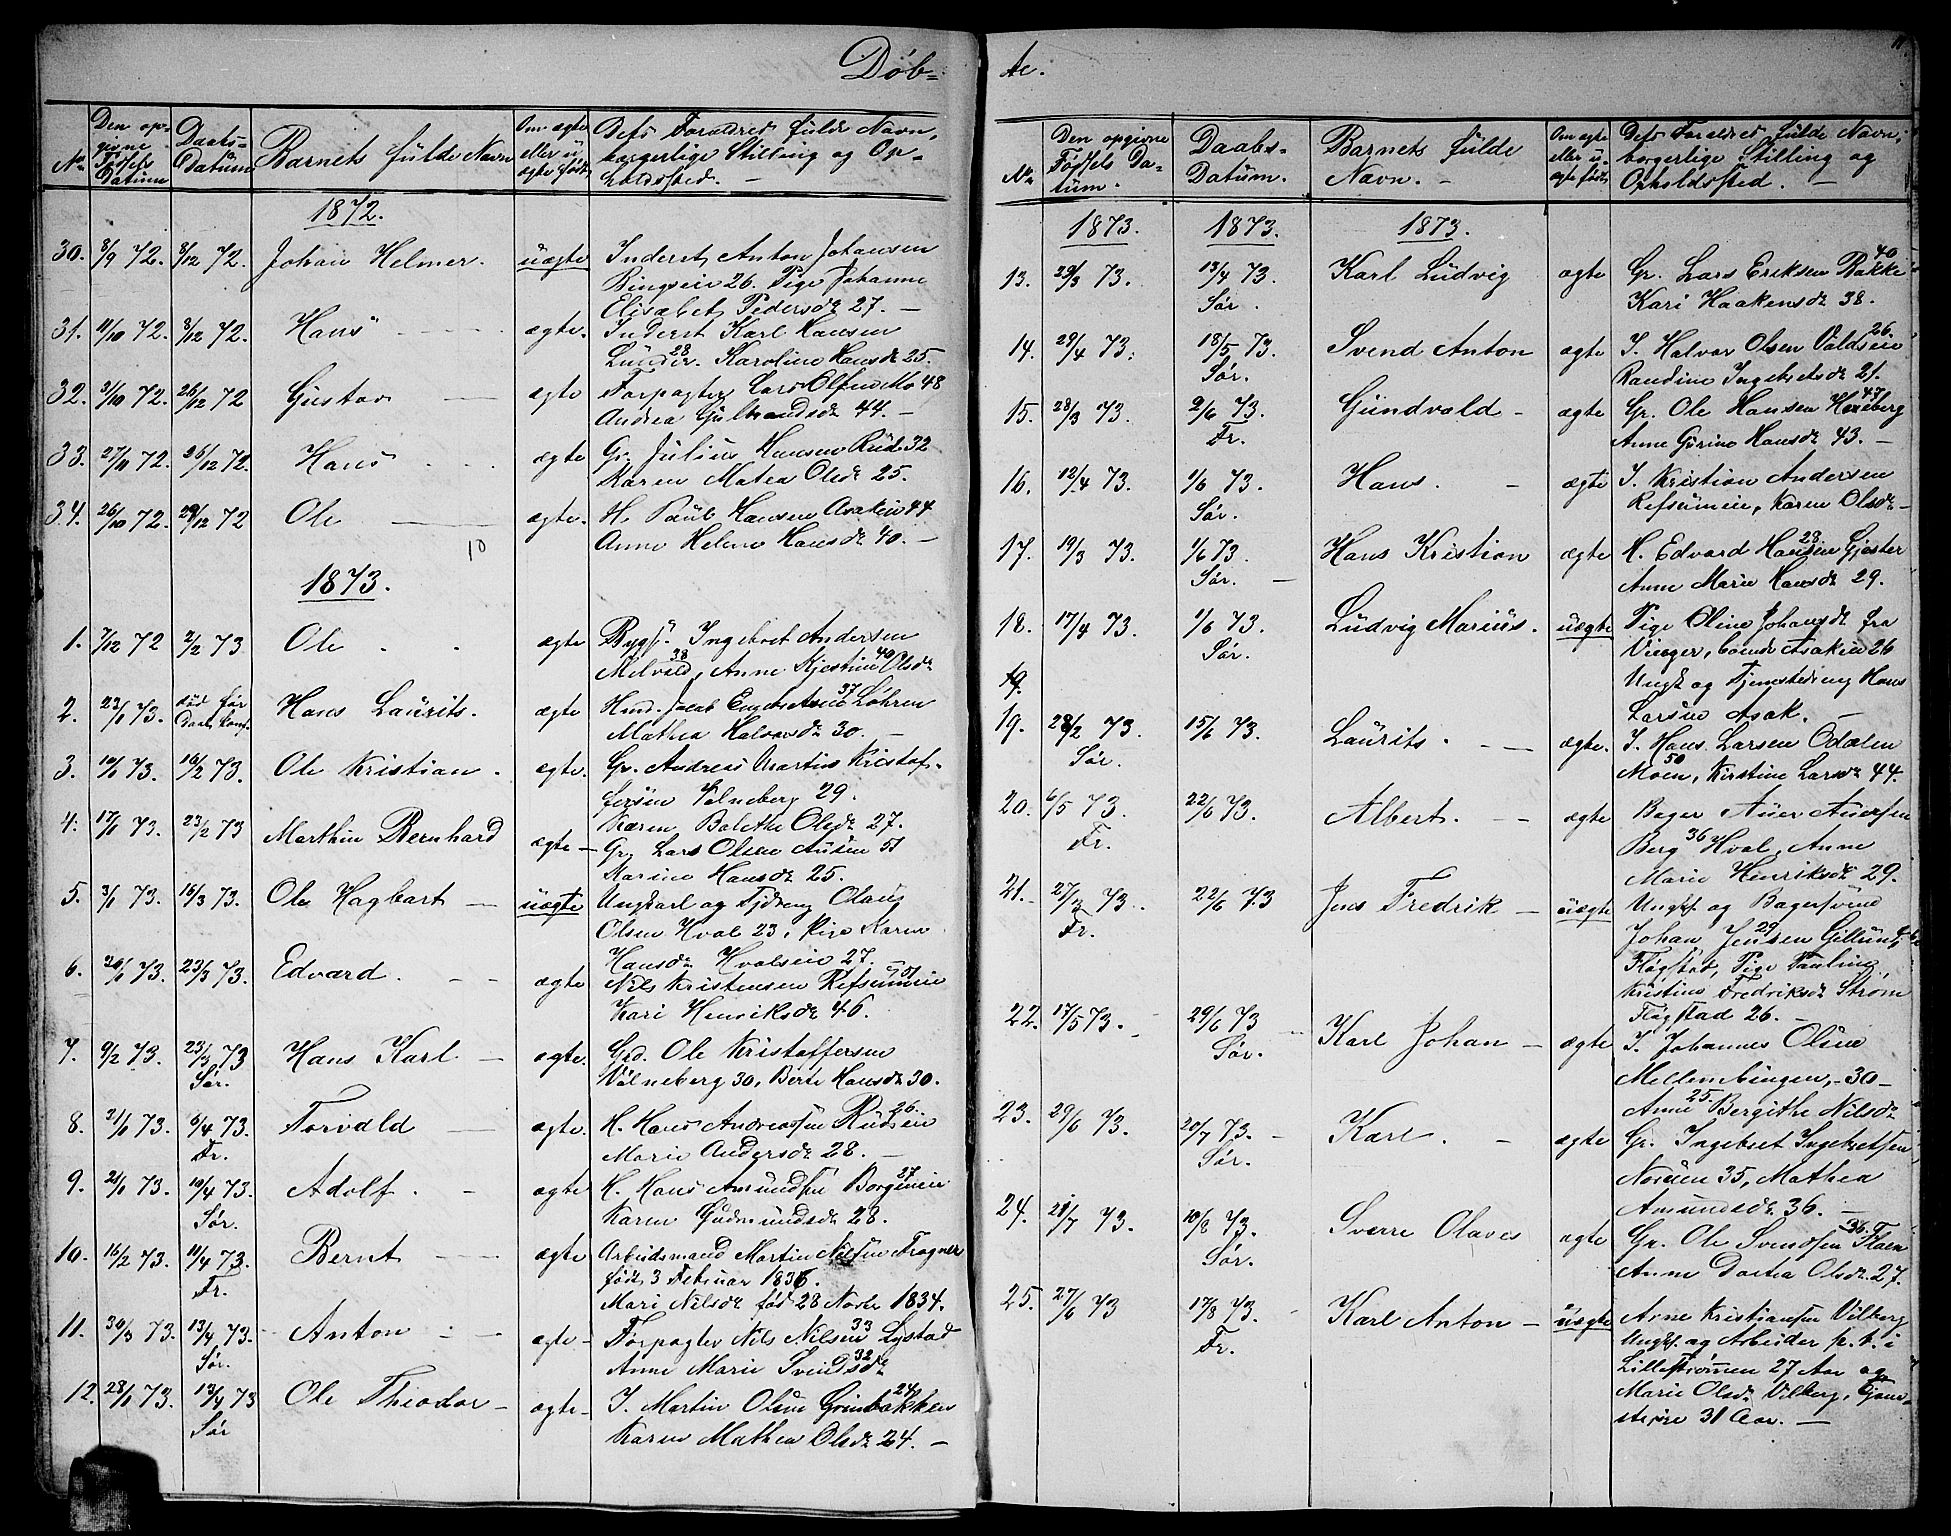 Døb-
No. Den opgivne Fødsels Datum Daabs-Datum Barnets fulde Navn Om ægte eller uægte født Dets Forældres fulde Navn, borgerlige Stilling og Opholdssted. —
1872.
30. 8/9 72. 8/12 72. Johan Helmer. uægte Inderst, Anton Johansen
Bingseie 26. Pige Johanne
Elisabet Pedersdr 27. —
31. 11/10 72. 8/12 72. Hans ægte. Inderst Karl Hansen
Lunder 28. Karoline Hansdr 25.
32. 3/10 72. 26/12 72 Gustav — ægte Forpagter Lars Olsen Mo 48
Andrea Gulbrandsdr 44. —
33. 27/11 72. 26/12 72. Hans ægte Gr. Julius Hansen Rud 32
Karen Matea Olsdr 25.
34. 26/10 72. 29/12 72 Ole — ægte. H. Paul Hansen Asakeie 44
Anne Helene Hansdr 40. —
10
1873.
1. 7/12 72 2/2 73 Ole ægte Bygs. Ingebret Andersen
Milvold 38, Anne Kjestine Olsdr 40
2. 23/1 73. død før Daab. Hans Laurits. ægte Hmd. Jacob Løhren 37
Mathea Halvorsdr 30. —
3. 10/1 73. 16/2 73. Ole Kristian. ægte. Gr. Andreas Martin Kristof-
fersen Valneberg 29.
Karen Bolethe Olsdr 27.
4. 17/1 73. 23/2 73 Marthin Bernhard ægte — Gr. Lars Olsen Ausen 51
Karine Hansdr 25.
5. 3/1 73. 16/3 73. Ole Hagbart — uægte Ungkarl og Tjdreng Olaus
Olsen Hval 23, Pige Karen
Hansdr Hvalseie 27.
6. 20/1 73. 23/3 73. Edvard. — ægte Nils Kristensen Refsumeie 51
Kari Henriksdr 46.
7. 9/2 73. 23/3 73 Sør. Hans Karl — ægte. Grd. Ole Kristoffersen
Valneberg 30, Berte Hansdr 30.
8. 21/1 73. 6/4 73. Fr. Torvald — ægte. H. Hans Andreassen Rudseie 26.
Marie Andersdr 28. —
9. 21/1 73. 10/4 73. Sør. Adolf. - ægte H. Hans Amundsen Borgeneie 27
Karen Gudmundsdr 28.
10. 16/2 73. 11/4 73. Fr. Bernt — ægte Arbeidsmand Martin Nilsen Fragner
født 3 Februar 1836.
Mari Nilsdr fød 28 Novbr 1834.
11. 30/3 73. 13/4 73. Sør. Anton — ægte — Forpagter Nils Nilsen 33 Lystad
Anne Marie Svendsdr 32
12. 28/1 73. 13/4 73 Sør Ole Theodor — ægte — I. Martin Olsen Grinbakken 24
Karen Mathea Olsdr 24. —
te.
No. Den opgivne Fødsels Datum. Daabs-Datum. Barnets fulde Navn. — Om ægte eller uægte født Dets Forældres fulde Navn, borgerlige Stilling og Opholdssted. —
1873. 1873. 1873.
13. 29/3 73. 13/4 73. Sør. Karl Ludvig ægte Gr. Lars Eriksen Rakke 40
Kari Haakensdr 38.
14. 29/4 73. 18/5 73. Sør. Svend Anton ægte I. Halvor Olsen Valdseie 26.
Randine Ingebretsdr 21.
15. 28/3 73. 2/6 73. Fr. Gundvald - ægte Gr. Ole Hansen Hexeberg 47
Anne Gurine Hansdr 43. —
16. 12/4 73. 1/6 73. Sør. Hans. - ægte I. Kristian Andersen
Refsumeie, Karen Olsdr —
17. 19/3 73. 1/6 73. Sør. — Hans Kristian ægte H. Edvard Hansen Gjester 28
Anne Marie Hansdr 29.
18. 17/4 73. 1/6 73. Sør. Ludvig Marius. uægte Pige Oline Johansdr fra
Vinger, boende Asakeie 26
Ungk og Tjenestedreng Hans
Larsen Asak. —
19.
19. 28/2 73. Sør. 15/6 73. Laurits. — ægte. I. Hans Larsen Odalen
Moen 50, Kirstine Larsdr 44.
20. 6/5 73. Fr. 22/6 73. Albert. — ægte Bager
Berg 36 Hval, Anne
Marie Henriksdr 29.
21. 27/3 73. Fr. 22/6 73 Jens Fredrik — uægte Ungk. og Bagersvend
Johan Jensen 29
Fløgstad, Pige Pauline
Kristine Fredriksdr Strøm
Fløgstad 26. —
22. 17/5 73. 29/6 73 Sør. Karl Johan — ægte I. Johannes Olsen
Mellembingen, - 30 —
Anne 25. Bergithe Nilsdr
23. 29/6 73. 20/7 73. Sør. Karl. - ægte Gr. Ingebret Ingebretsen
Nordeen 35, Mathea
Amundsdr 36. —
24. 21/7 73. 10/8 73. Sør. Sverre Olaves ægte Gr. Ole Svendsen 36. Flaen
Anne Dortea Olsdr. 27.
25. 27/6 73 17/8 73. Fr. Karl Anton — uægte Arne Kristiansen Vilberg
Ungk. og Arbeider p. t. i
Lillestrømmen 27 Aar og
Marie Olsdr Vilberg, Tjene-
stepige 31 Aar. —